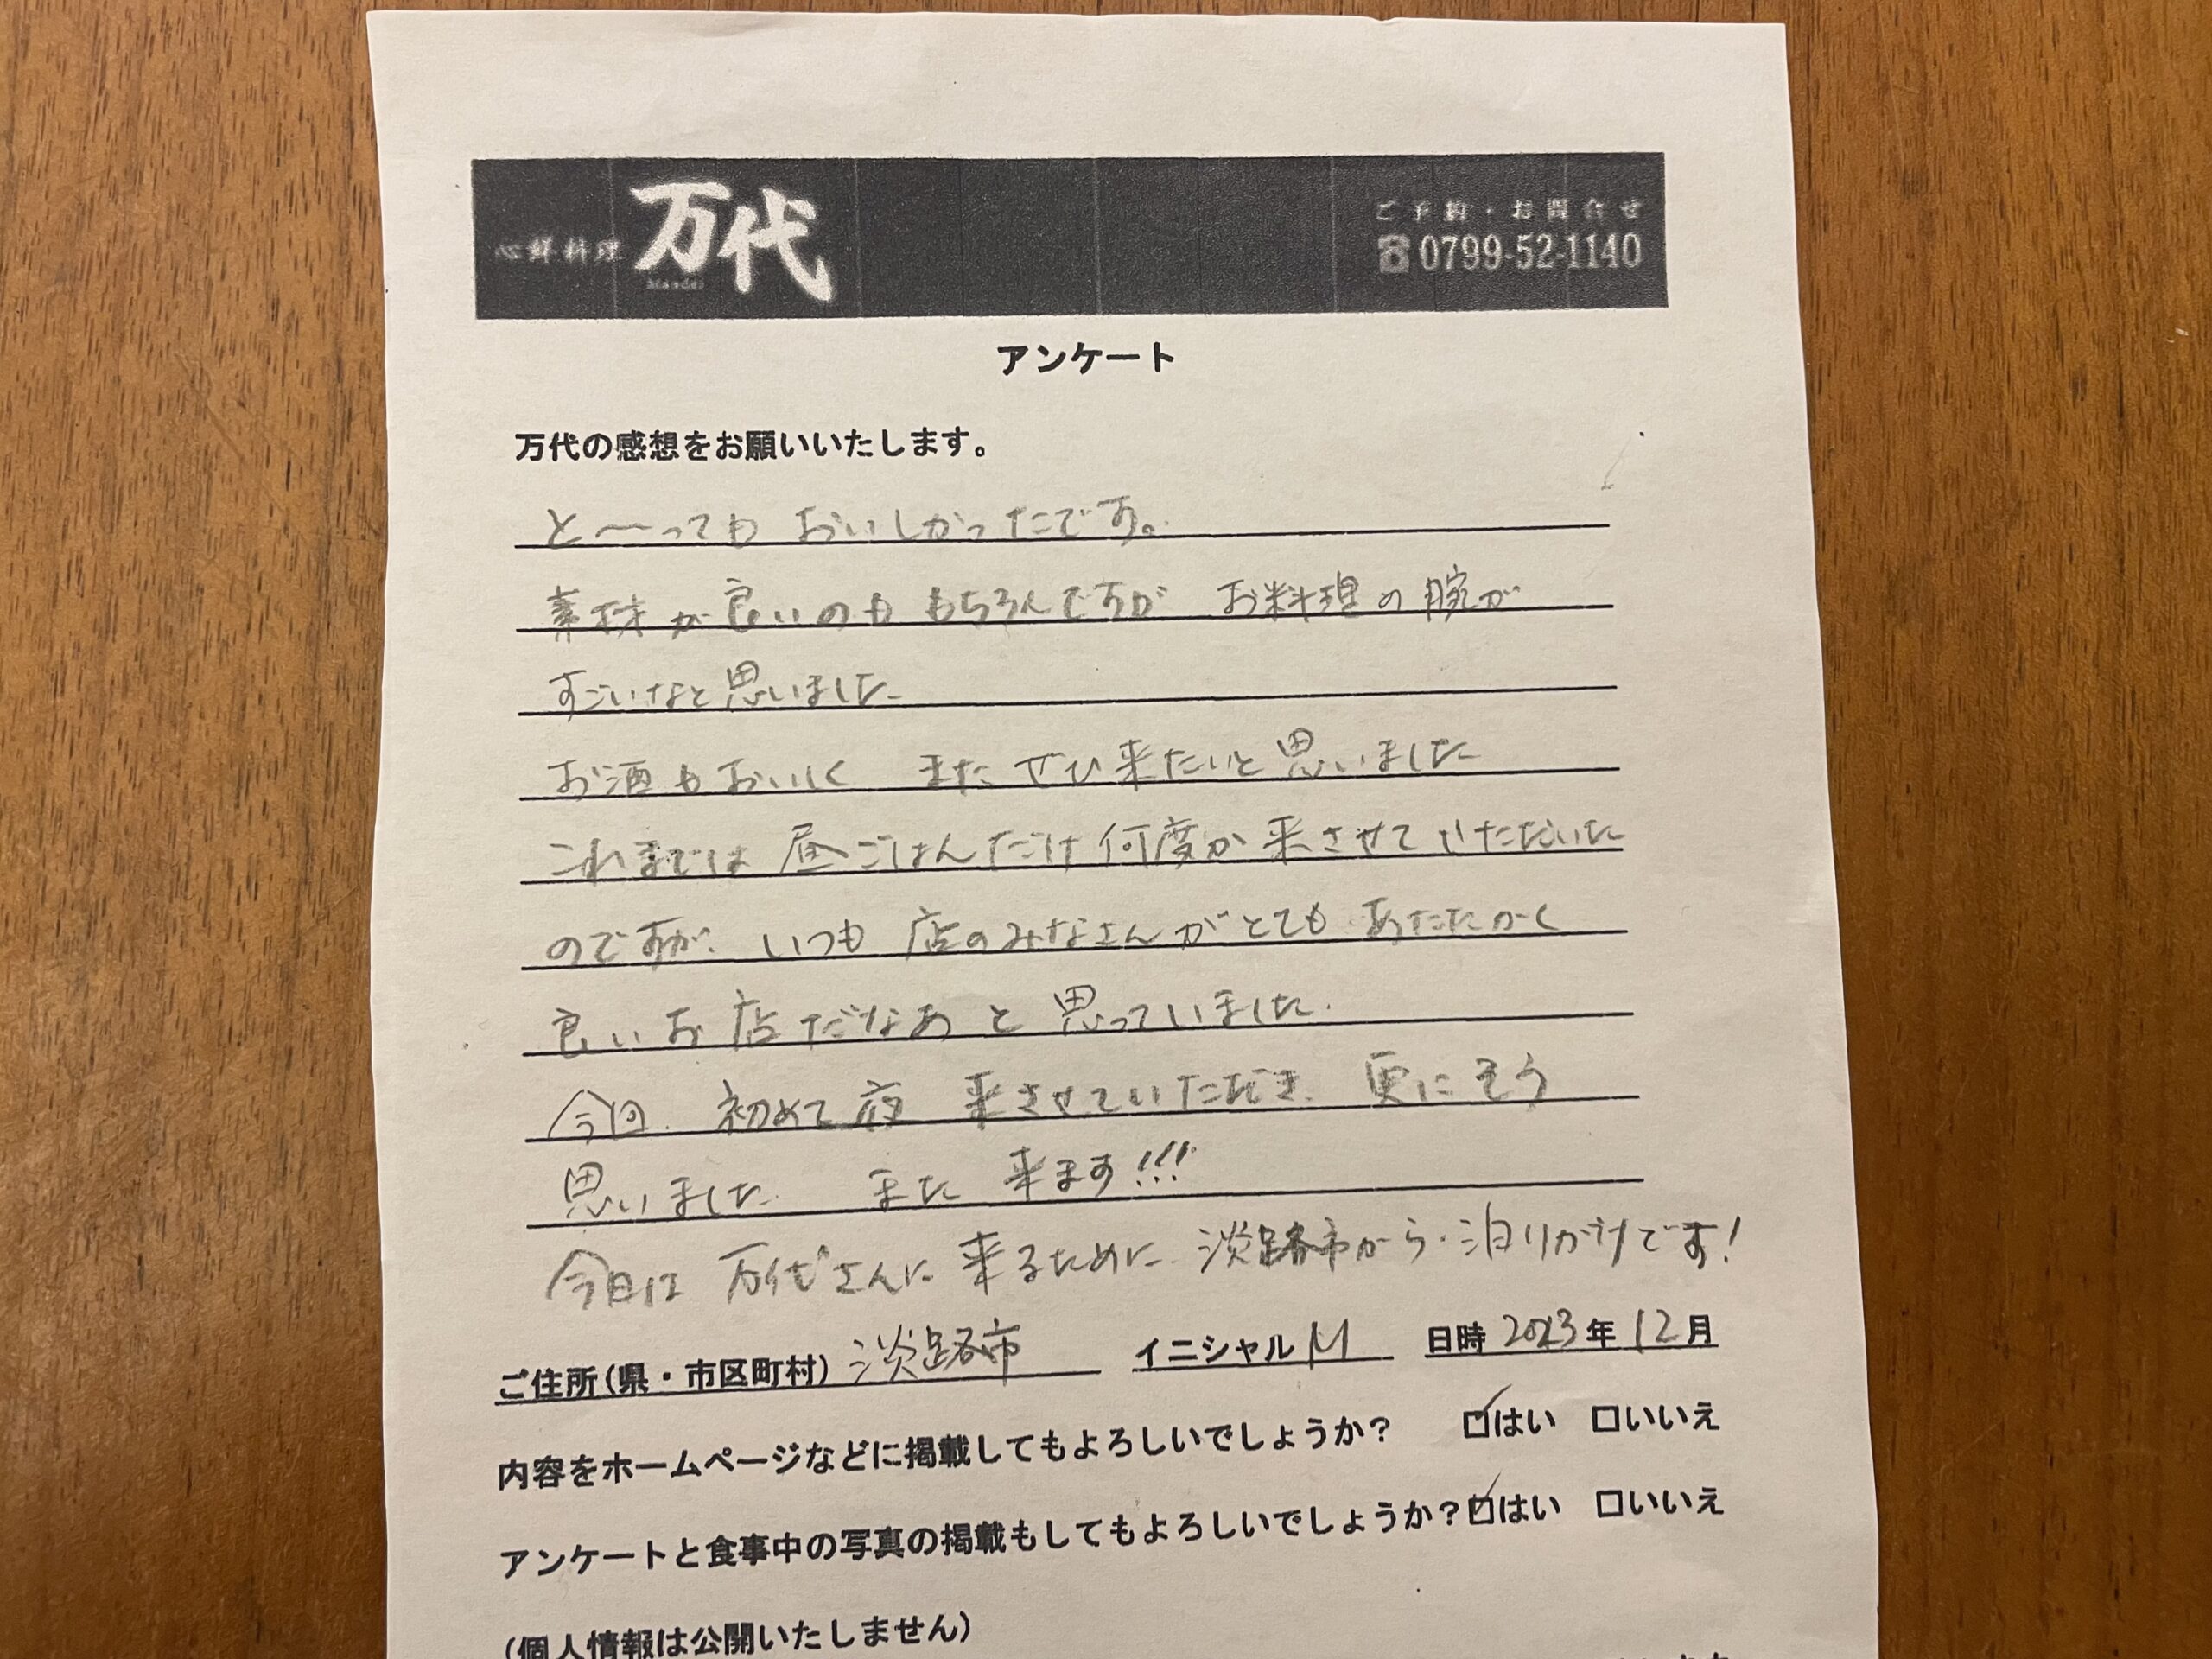 心鮮料理 万代
Mandai
ご予約・お問合せ
☎0799-52-1140
アンケート
万代の感想をお願いいたします。
と〜ってもおいしかったです。
素材が良いのももちろんですが お料理の腕が
すごいなと思いました
お酒もおいしく またぜひ来たいと思いました
これまでは 昼ごはんだけ何度か来させていただいた
のですが、いつも店のみなさんがとてもあたたかく
良いお店だなあと思っていました.
今回、初めて夜 来させていただき、更にそう
思いました. また来ます!!!
今日は 万代さんに来るために 淡路市から・泊りがけです!
ご住所(県・市区町村) 淡路市 イニシャル M 日時 2023年12月
内容をホームページなどに掲載してもよろしいでしょうか? ☑はい □いいえ
アンケートと食事中の写真の掲載もしてもよろしいでしょうか?☑はい □いいえ
(個人情報は公開いたしません)